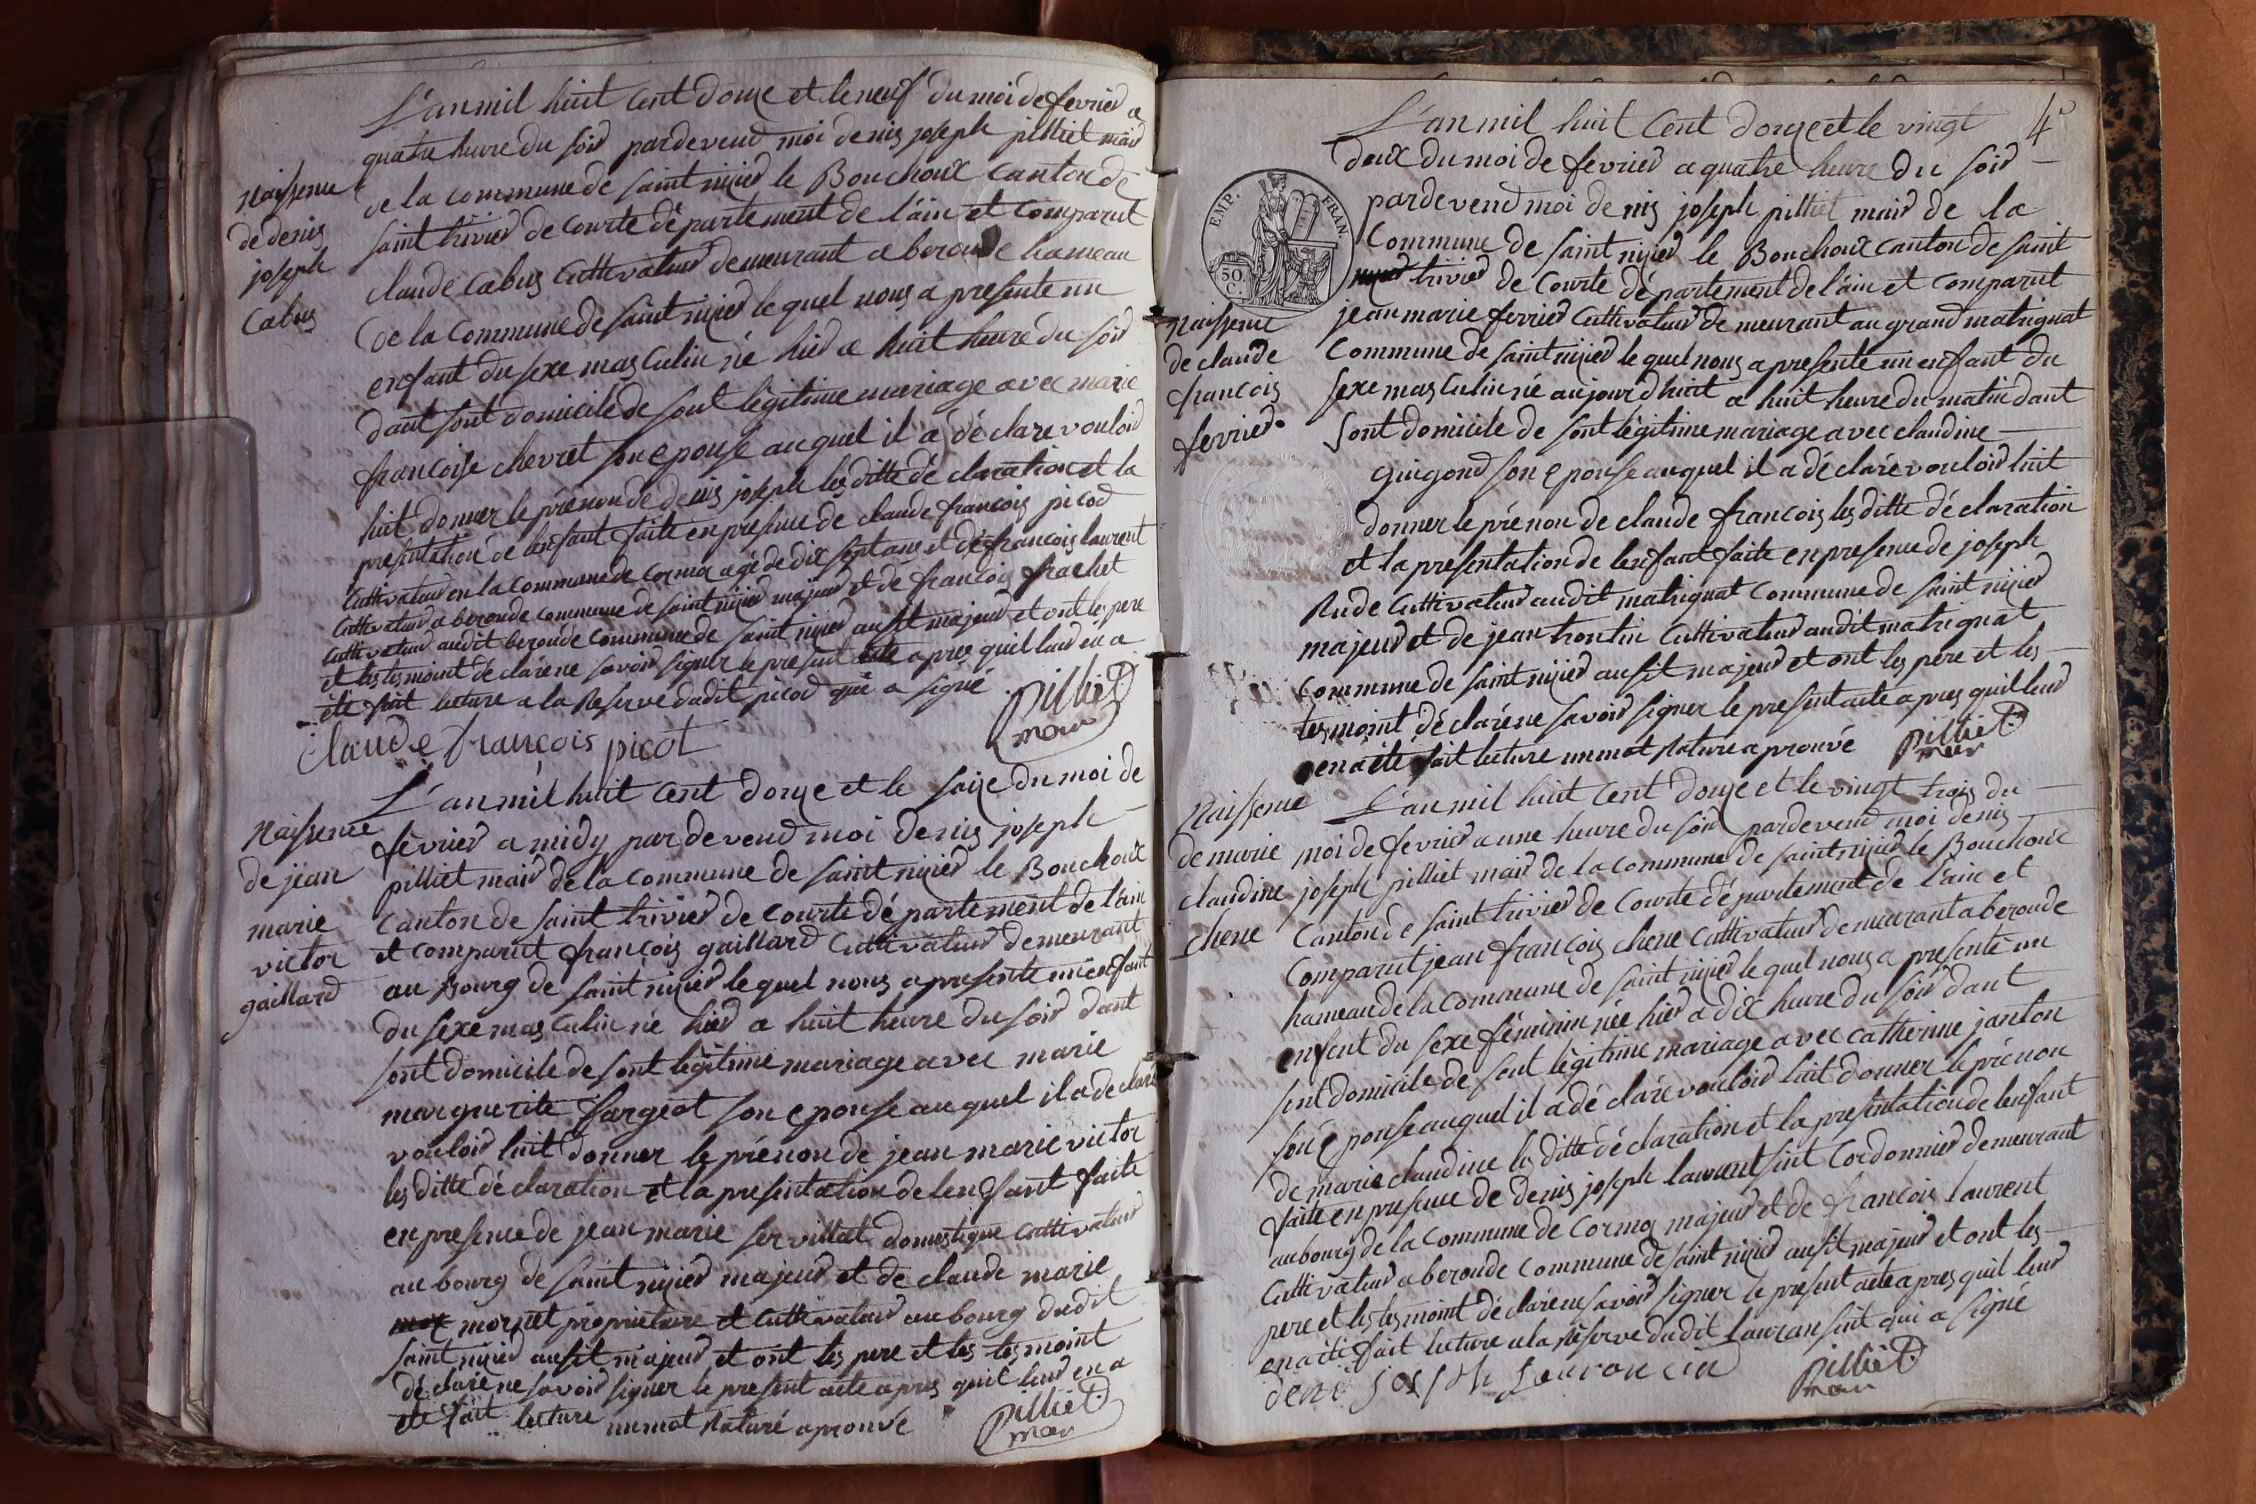 L'an mil huit Cent douze et le neuf du moi de fevrier a
quatre heure du soir pardevend moi denis joseph pilliet mair
de la commune de saint nizier le Bouchoux canton de
saint trivier de courte département de l'ain et comparut
claude cabus Cuttivateur demeurant a beroude hameau
de la Commune de saint nizier le quel nous a presente un
enfant du sexe masculin né hier a huit heure du soir
dant sont domicile de sont légitime mariage avec marie
françoise chevret son epouse auquel il a déclare vouloir
luit donner le prénon de denis joseph les ditte déclaration et la
presentation de lenfant faite en presence de claude françois picod
Cuttivateur en la commune de Cormoz agé de dix sept ans et de françois laurent
Cuttivateur a beroude commune de saint nizier majeur et de françois frachet
Cuttivateur audit beroude commune de saint nizier ausit majeur et ont les pere
et les tesmoint déclaré ne savoir signer le present acte apres quil leur en a
été fait lecture a la Reserve dudit picod qui a signé
pilliet
mair
Claude françois picot
Naissence
de denis
joseph
Cabus
L'an mil huit Cent douze et le saize du moi de
février a midy pardevend moi denis joseph
pilliet mair de la commune de saint nizier le Bouchoux
Canton de saint trivier de courte département de l'ain
et comparut françois gaillard Cuttivateur demeurant
au Bourg de saint nizier le quel nous a presente un enfant
du sexe masculin né hier a huit heure du soir dant
sont domicile de sont légitime mariage avec marie
marguerite fargeot son epouse auquel il a declaré
vouloir luit donner le prénon de jean marie victor
les ditte déclaration et la presentation de lenfant faite
en presence de jean marie servillat domestique Cuttivateur
au bourg de saint nizier majeur et de claude marie
moznet proprietaire et Cuttivateur au bourg dudit
saint nizier ausit majeur et ont les pere et les tesmoint
déclaré ne savoir signer le present acte apres quil leur en a
été fait lecture un mot Raturé aprouvé
pilliet
mair
Naissence
de jean
marie
victor
gaillard
4e
L'an mil huit Cent douze et le vingt
deux du moi de fevrier a quatre heure du soir
pardevend moi denis joseph pilliet mair de la
Commune de saint nizier le Bouchoux canton de saint
nizier trivier de Courte département de l'ain et comparut
jean marie fevrier Cuttivateur demeurant au grand matrignat
Commune de saint nizier le quel nous a presente un enfant du
sexe masculin né aujourdhuit a huit heure du matin dant
sont domicile de sont légitime mariage avec claudine
guigond son epouse auquel il a déclaré vouloir luit
donner le prénon de claude françois les ditte déclaration
et la presentation de lenfant faite en presence de joseph
Rude Cuttivateur audit matrignat Commune de saint nizier
majeur et de jean trontin Cuttivateur audit matrignat
Commune de saint nizier ausit majeur et ont les pere et les
tesmoint déclaré ne savoir signer le present acte apres quil leur
en a été fait lecture un mot Rature aprouvé
pilliet
mair
EMP. FRAN.
50
C.
Naissence
de claude
françois
fevrier
L'an mil huit Cent douze et le vingt trois du
moi de fevrier a une heure du soir pardevend moi denis
joseph pilliet mair de la commune de saint nizier le Bouchoux
Canton de saint trivier de Courte département de l'ain et
Comparut jean françois chene Cuttivateur demeurant a beroude
hameau de la commune de saint nizier le quel nous a presenté un
enfent du sexe féminin née hier a dix heure du soir dant
sont domicile de sont légitime mariage avec catherine janton
son épouse auquel il a déclaré vouloir luit donner le prénon
de marie claudine les ditte déclaration et la presentation de lenfant
faite en presence de denis joseph laurent sint Cordonnier demeurant
au bourg de la Commune de Cormoz majeur et de françois laurent
Cuttivateur a beroude commune de saint nizier ausit majeur et ont les
pere et les tesmoint déclaré ne savoir signer le present acte apres quil leur
en a été fait lecture a la Réserve dudit Lauran sint qui a signé
pilliet
mair
deni joseph Lauron cin
Naissence
de marie
claudine
chene